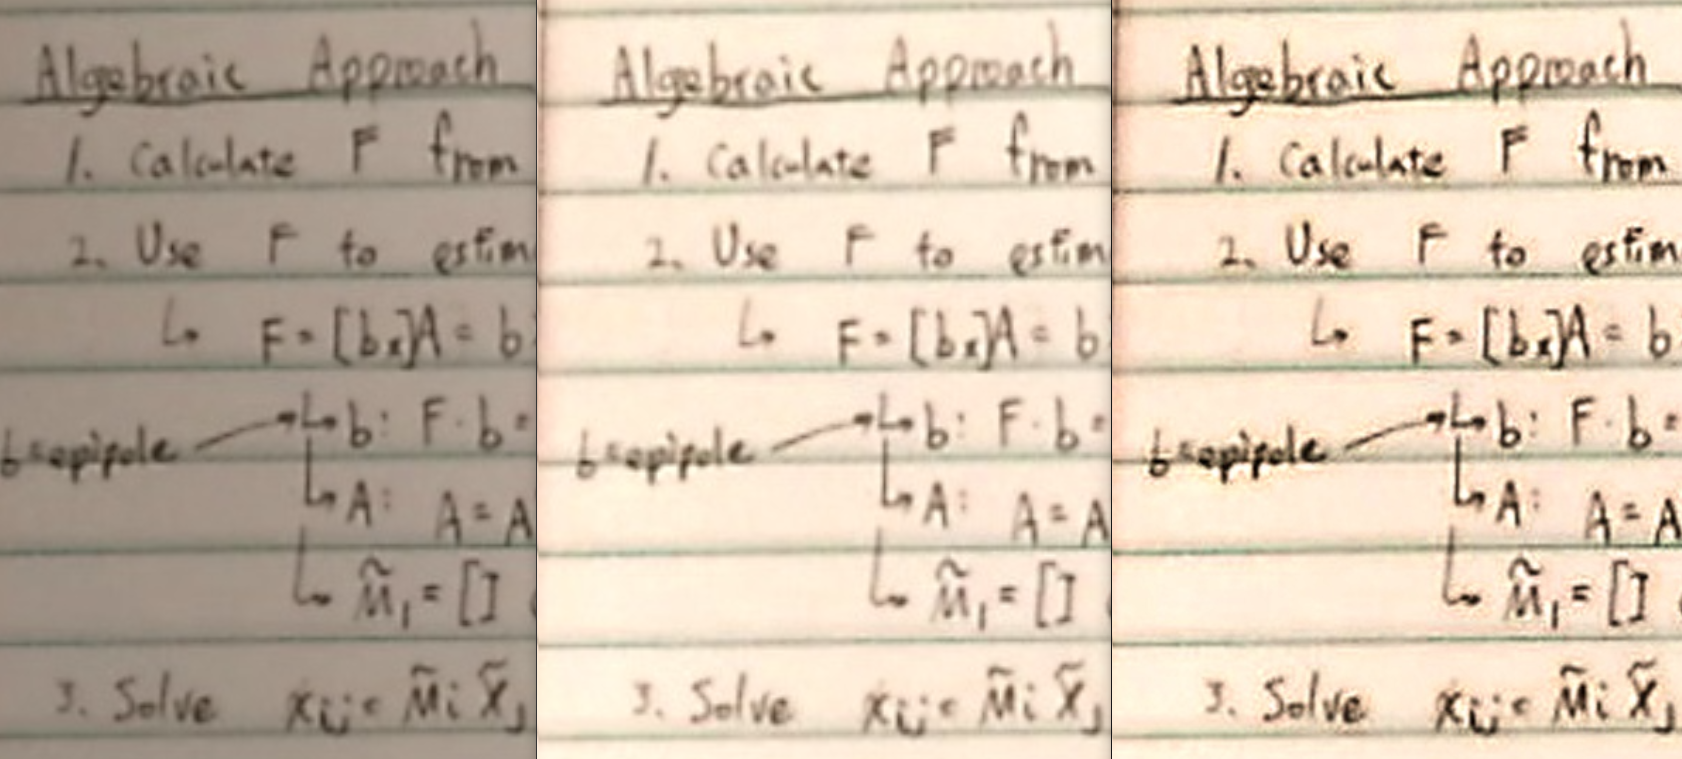 Algebraic Approach
1. Calculate F from
2. Use F to estim
↳ F = [bx]A = b
b = epipole → ↳ b: F · b =
↳ A: A = A
↳ M̃₁ = [I
3. Solve xij = M̃i X̃j
Algebraic Approach
1. Calculate F from
2. Use F to estim
↳ F = [bx]A = b
b = epipole → ↳ b: F · b =
↳ A: A = A
↳ M̃₁ = [I
3. Solve xij = M̃i X̃j
Algebraic Approach
1. Calculate F from
2. Use F to estim
↳ F = [bx]A = b
b = epipole → ↳ b: F · b =
↳ A: A = A
↳ M̃₁ = [I
3. Solve xij = M̃i X̃j